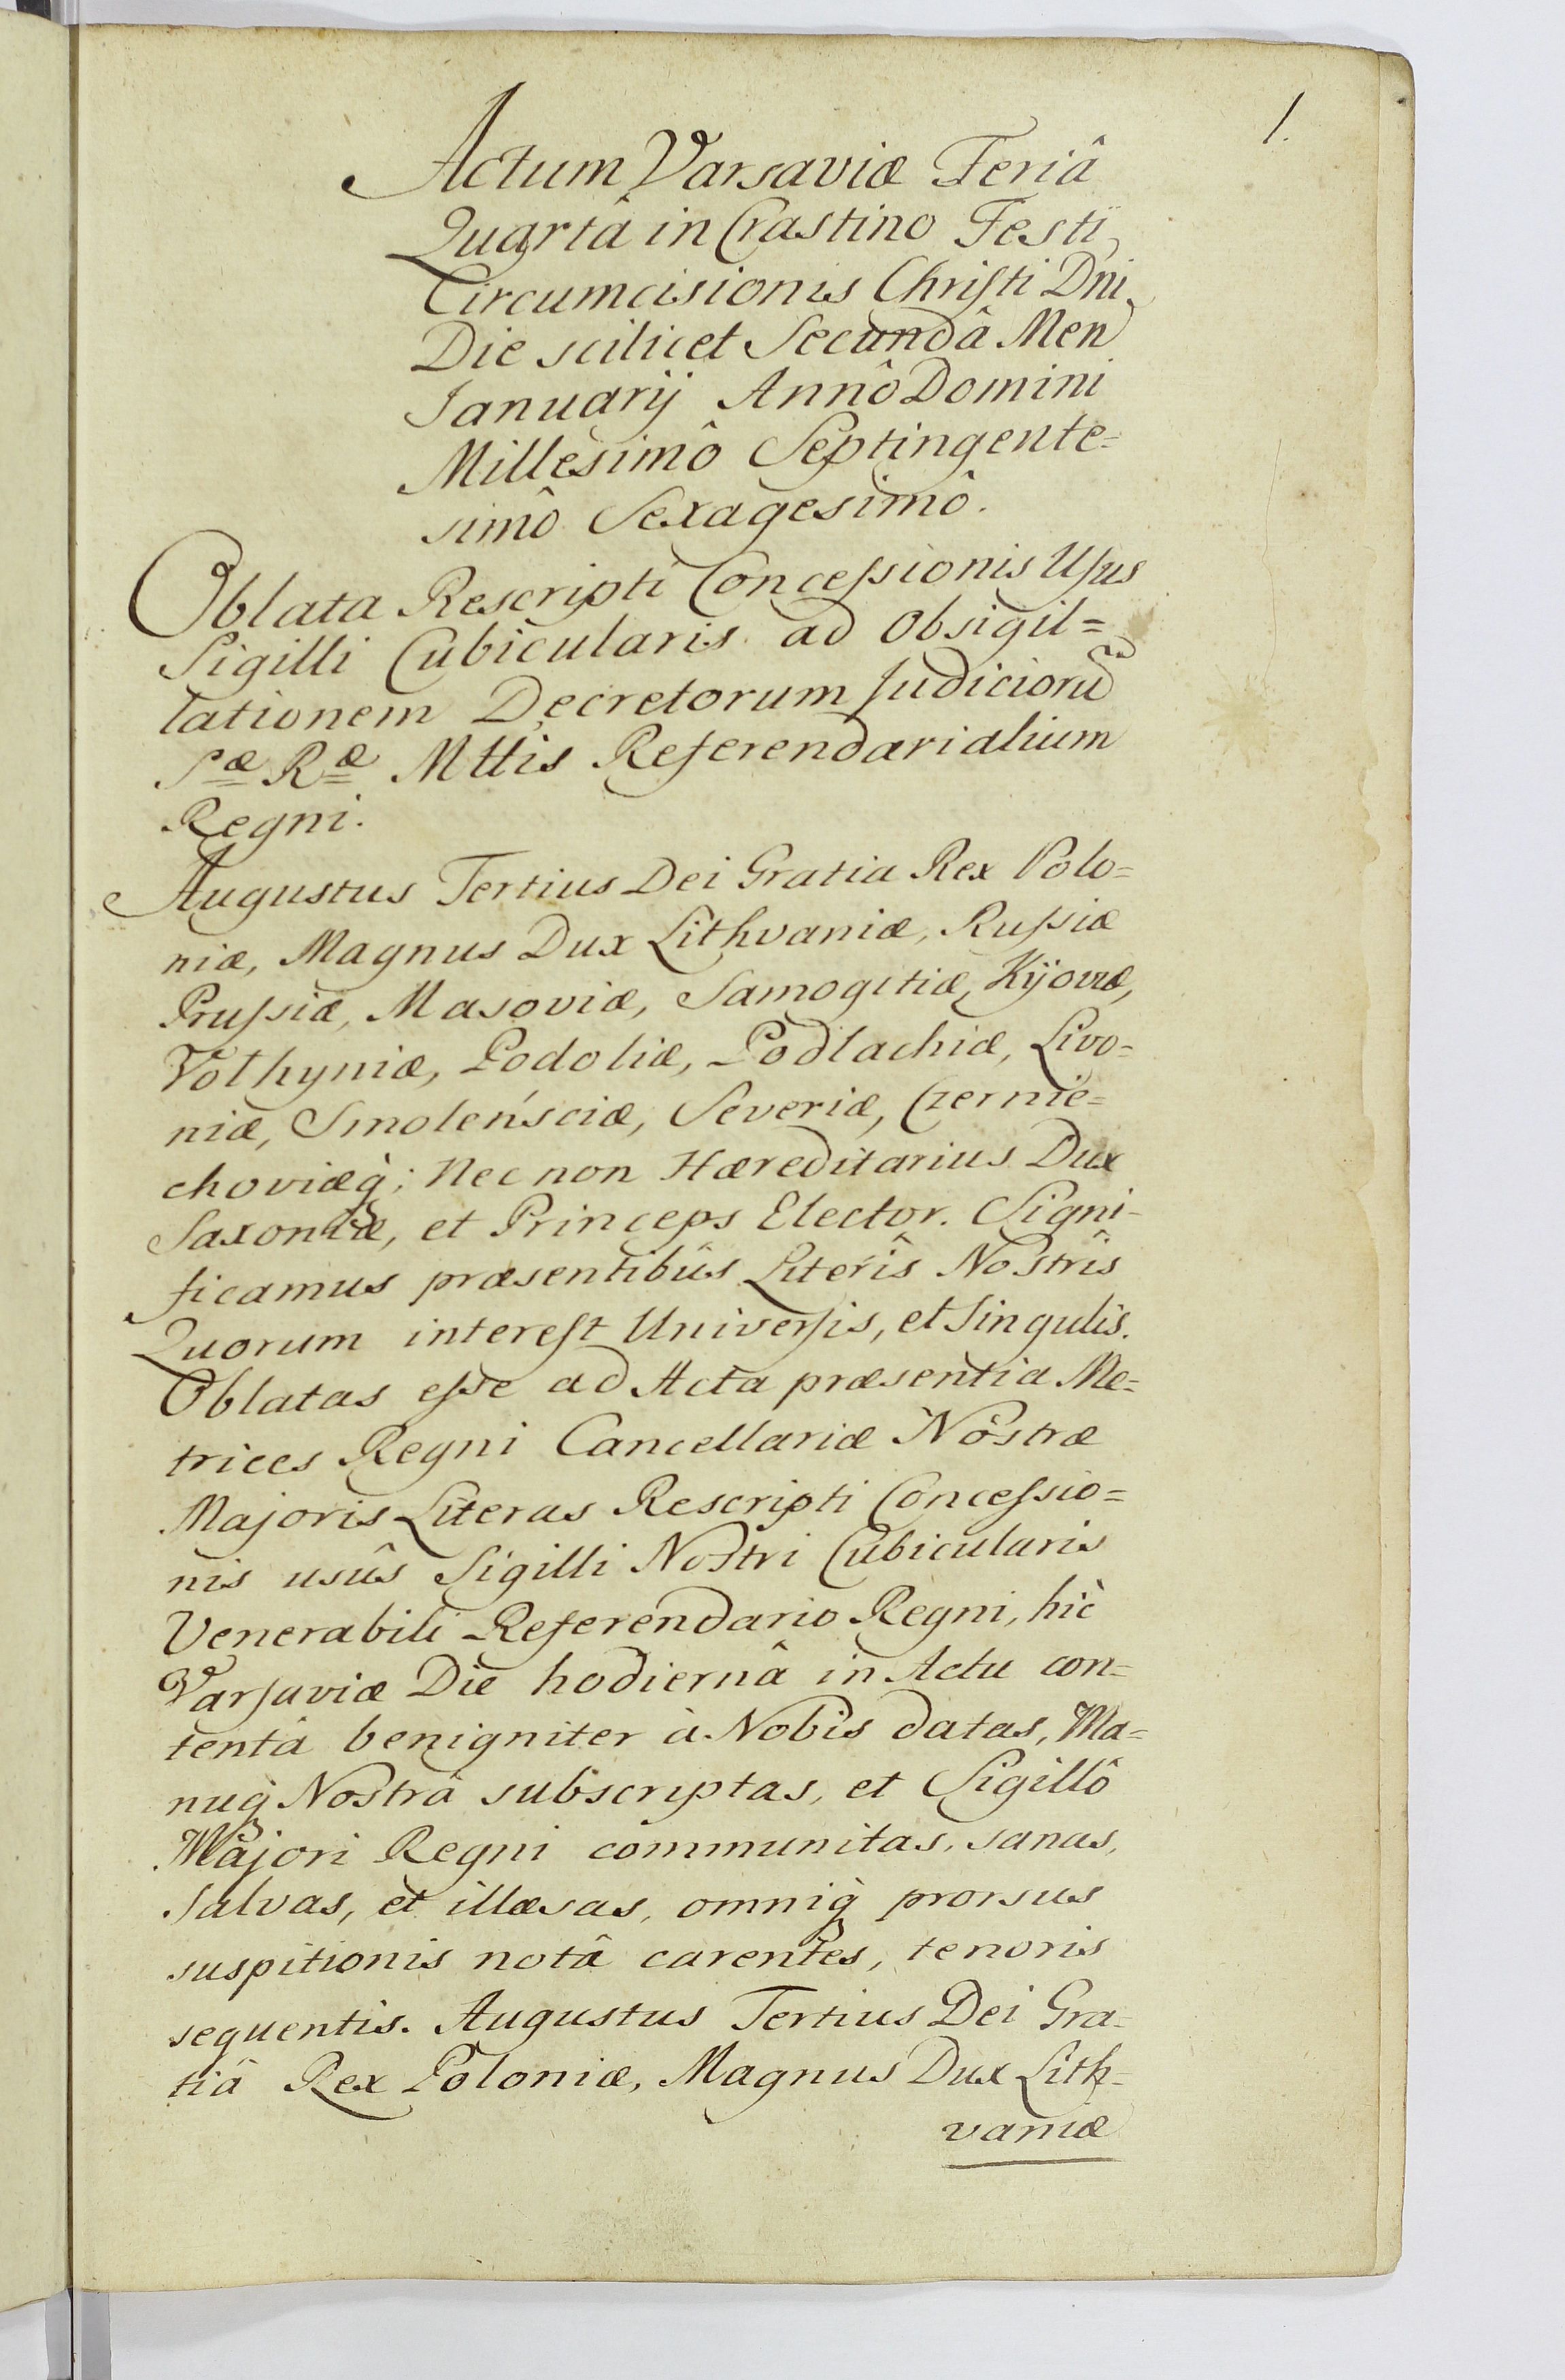 1.
Actum Varsaviæ Feriâ
Quartâ in Crastino Festi
Circumcisionis Chriſti Dni
Die scilicet Secundâ Men
Januarij Annô Domini
Millesimô Septingente=
simô Sexagesimô.
Oblata Rescripti Conceſsionis Uſus
Sigilli Cubicularis ad Obsigil=
lationem Decretorum Judiciorū
Sæ Ræ Mttis Referendarialium
Regni.
Augustus Tertius Dei Gratia Rex Polo=
niæ, Magnus Dux Lithvaniæ, Ruſsiæ
Pruſsiæ, Masoviæ, Samogitiæ, Kijoviæ,
Volhyniæ, Podoliæ, Podlachiæ, Livo=
niæ, Smoleńsciæ, Severiæ, Czernie=
choviæq̀; Nec non Hæreditarius Dux
Saxoniæ, et Princeps Elector. Signi-
ficamus præsentibûs Literîs Nostrîs
Quorum intereſt Universis, et Singulis.
Oblatas eſse ad Acta præsentia Me=
trices Regni Cancellariæ Nostræ
Majoris Literas Rescripti Conceſsio=
nis usûs Sigilli Nostri Cubicularis
Venerabili Referendario Regni, hìc
Varsaviæ Die hodiernâ in Actu con=
tentâ benigniter à Nobis datas, Ma=
nuq̀ Nostrâ subscriptas, et Sigillô
Majori Regni communitas, sanas,
salvas, et illæsas, omniq̀ prorsus
suspitionis notâ carentes, tenoris
sequentis. Augustus Tertius Dei Gra=
tiâ Rex Poloniæ, Magnus Dux Lith=
vaniæ